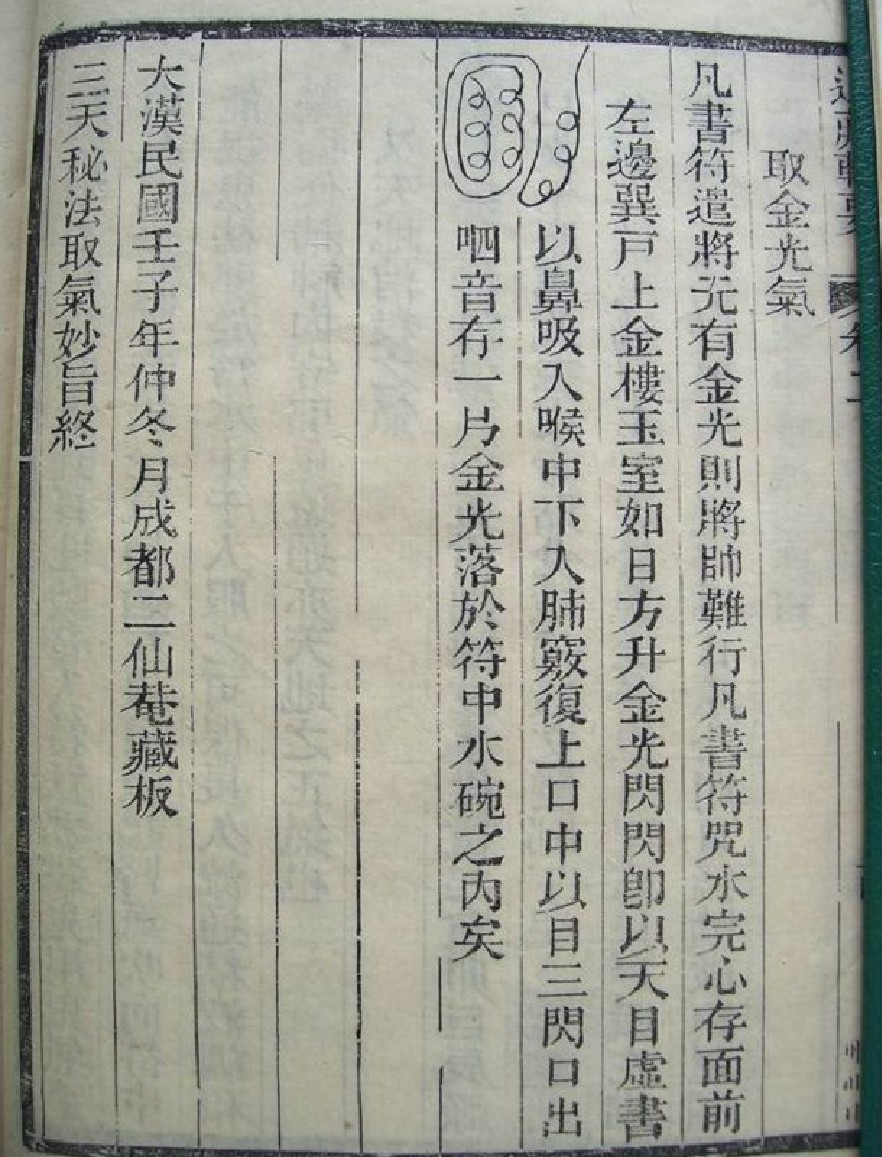 取金光氣
凡書符遣將无有金光則將帥難行凡書符咒水完心存面前
左邊巽戸上金樓玉室如日方升金光閃閃卽以天目虛書
以鼻吸入喉中下入肺竅復上口中以目三閃口出
呬音存一片金光落於符中水碗之內矣
大漢民國壬子年仲冬月成都二仙菴藏板
三天秘法取氣妙旨終